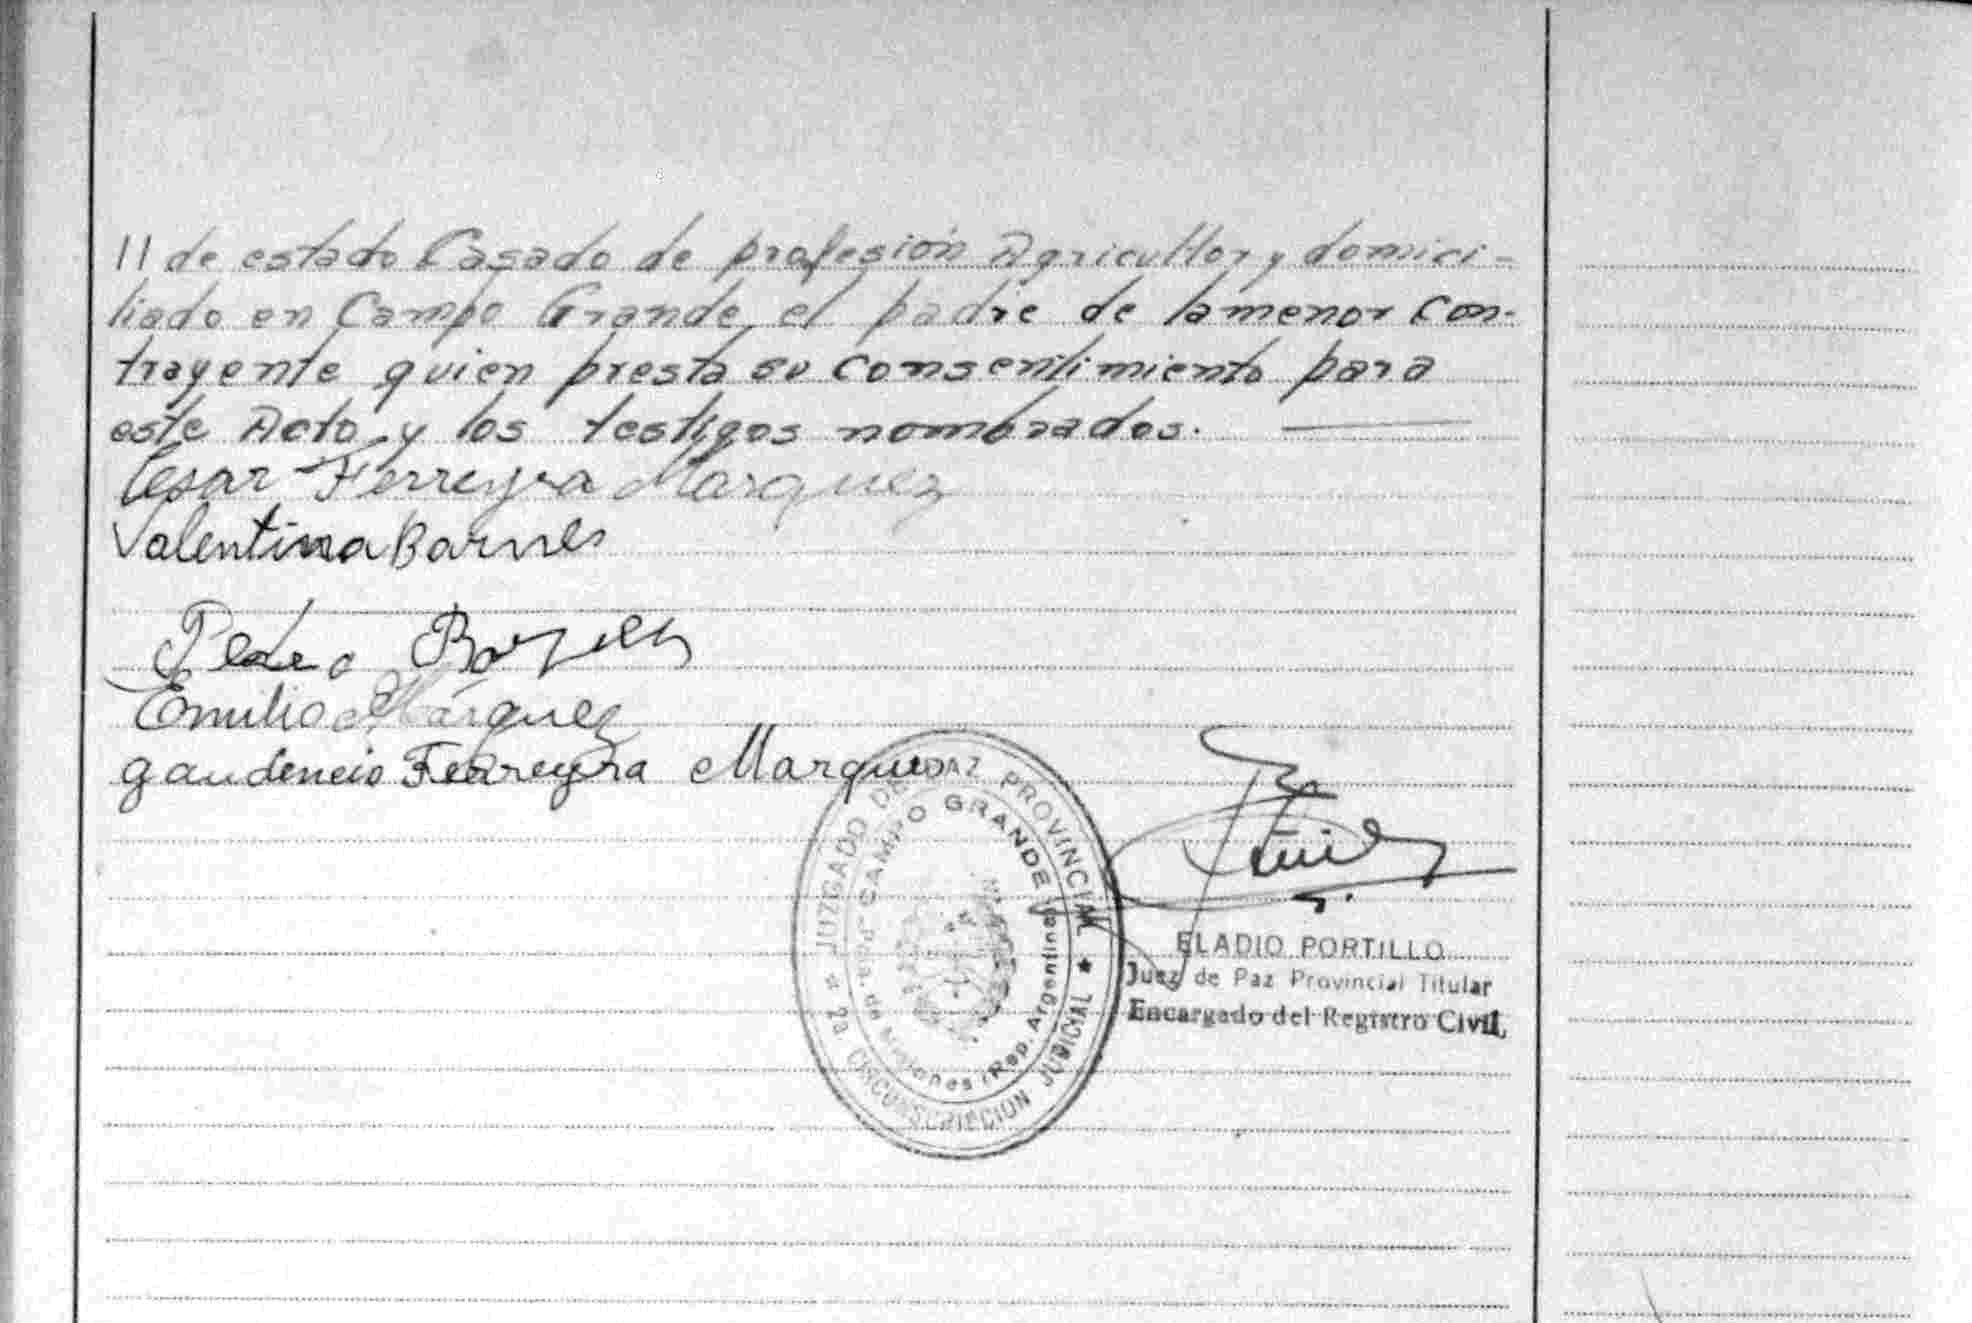 // de estado Casado de profesión Agricultor y domici-
liado en Campo Grande, el padre de la menor con-
trayente quien presta su consentimiento para
este Acto, y los testigos nombrados.
Cesar Ferreyra Marquez
Valentina Barnes
Pedro
Emilio Márquez
gaudencio Ferreyra Marques
JUZGADO DE PAZ PROVINCIAL
CAMPO GRANDE
Pcia. de Misiones (Rep. Argentina)
2a. CIRCUNSCRIPCION JUDICIAL
ELADIO PORTILLO
Juez de Paz Provincial Titular
Encargado del Registro Civil